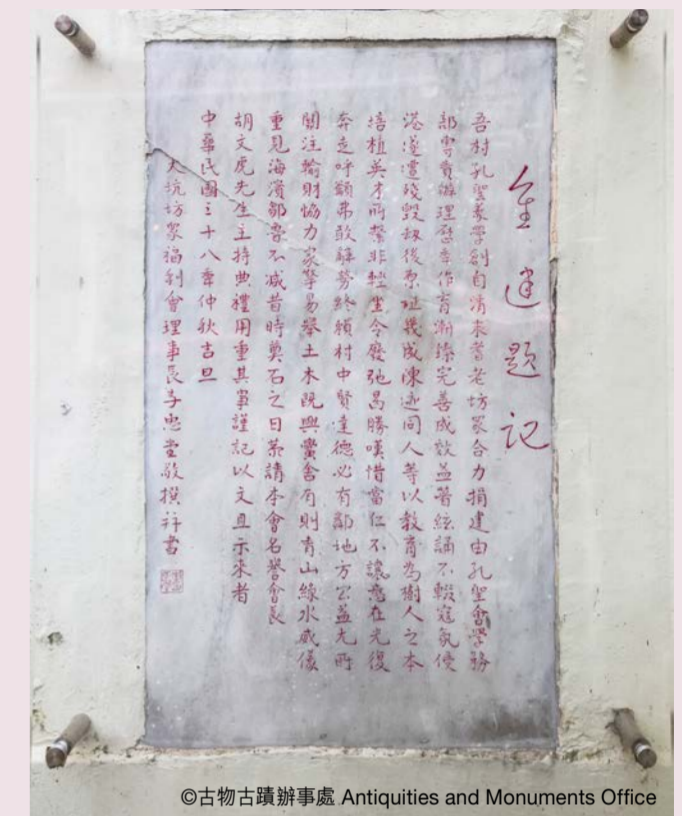 重建題記
吾村孔聖義學創自清末耆老坊眾合力捐建由孔聖會學務
部專責辦理歷年作育漸臻完善成效益著絃誦不輟寇氛侵
港遂遭殘毀劫後原址幾成陳迹同人等以教育為樹人之本
培植英才所繫非輕坐令廢弛曷勝嘆惜當仁不讓志在光復
奔走呼籲弗敢辭勞終賴村中賢達德必有鄰地方公益尤所
關注輸財協力眾擎易舉土木既興黌舍有則青山綠水威儀
重見海濱鄒魯不減昔時奠石之日恭請本會名譽會長
胡文虎先生主持典禮用重其事謹記以文且示來者
中華民國三十八年仲秋吉旦
大坑坊眾福利會理事長李忠堂敬撰并書
©古物古蹟辦事處 Antiquities and Monuments Office